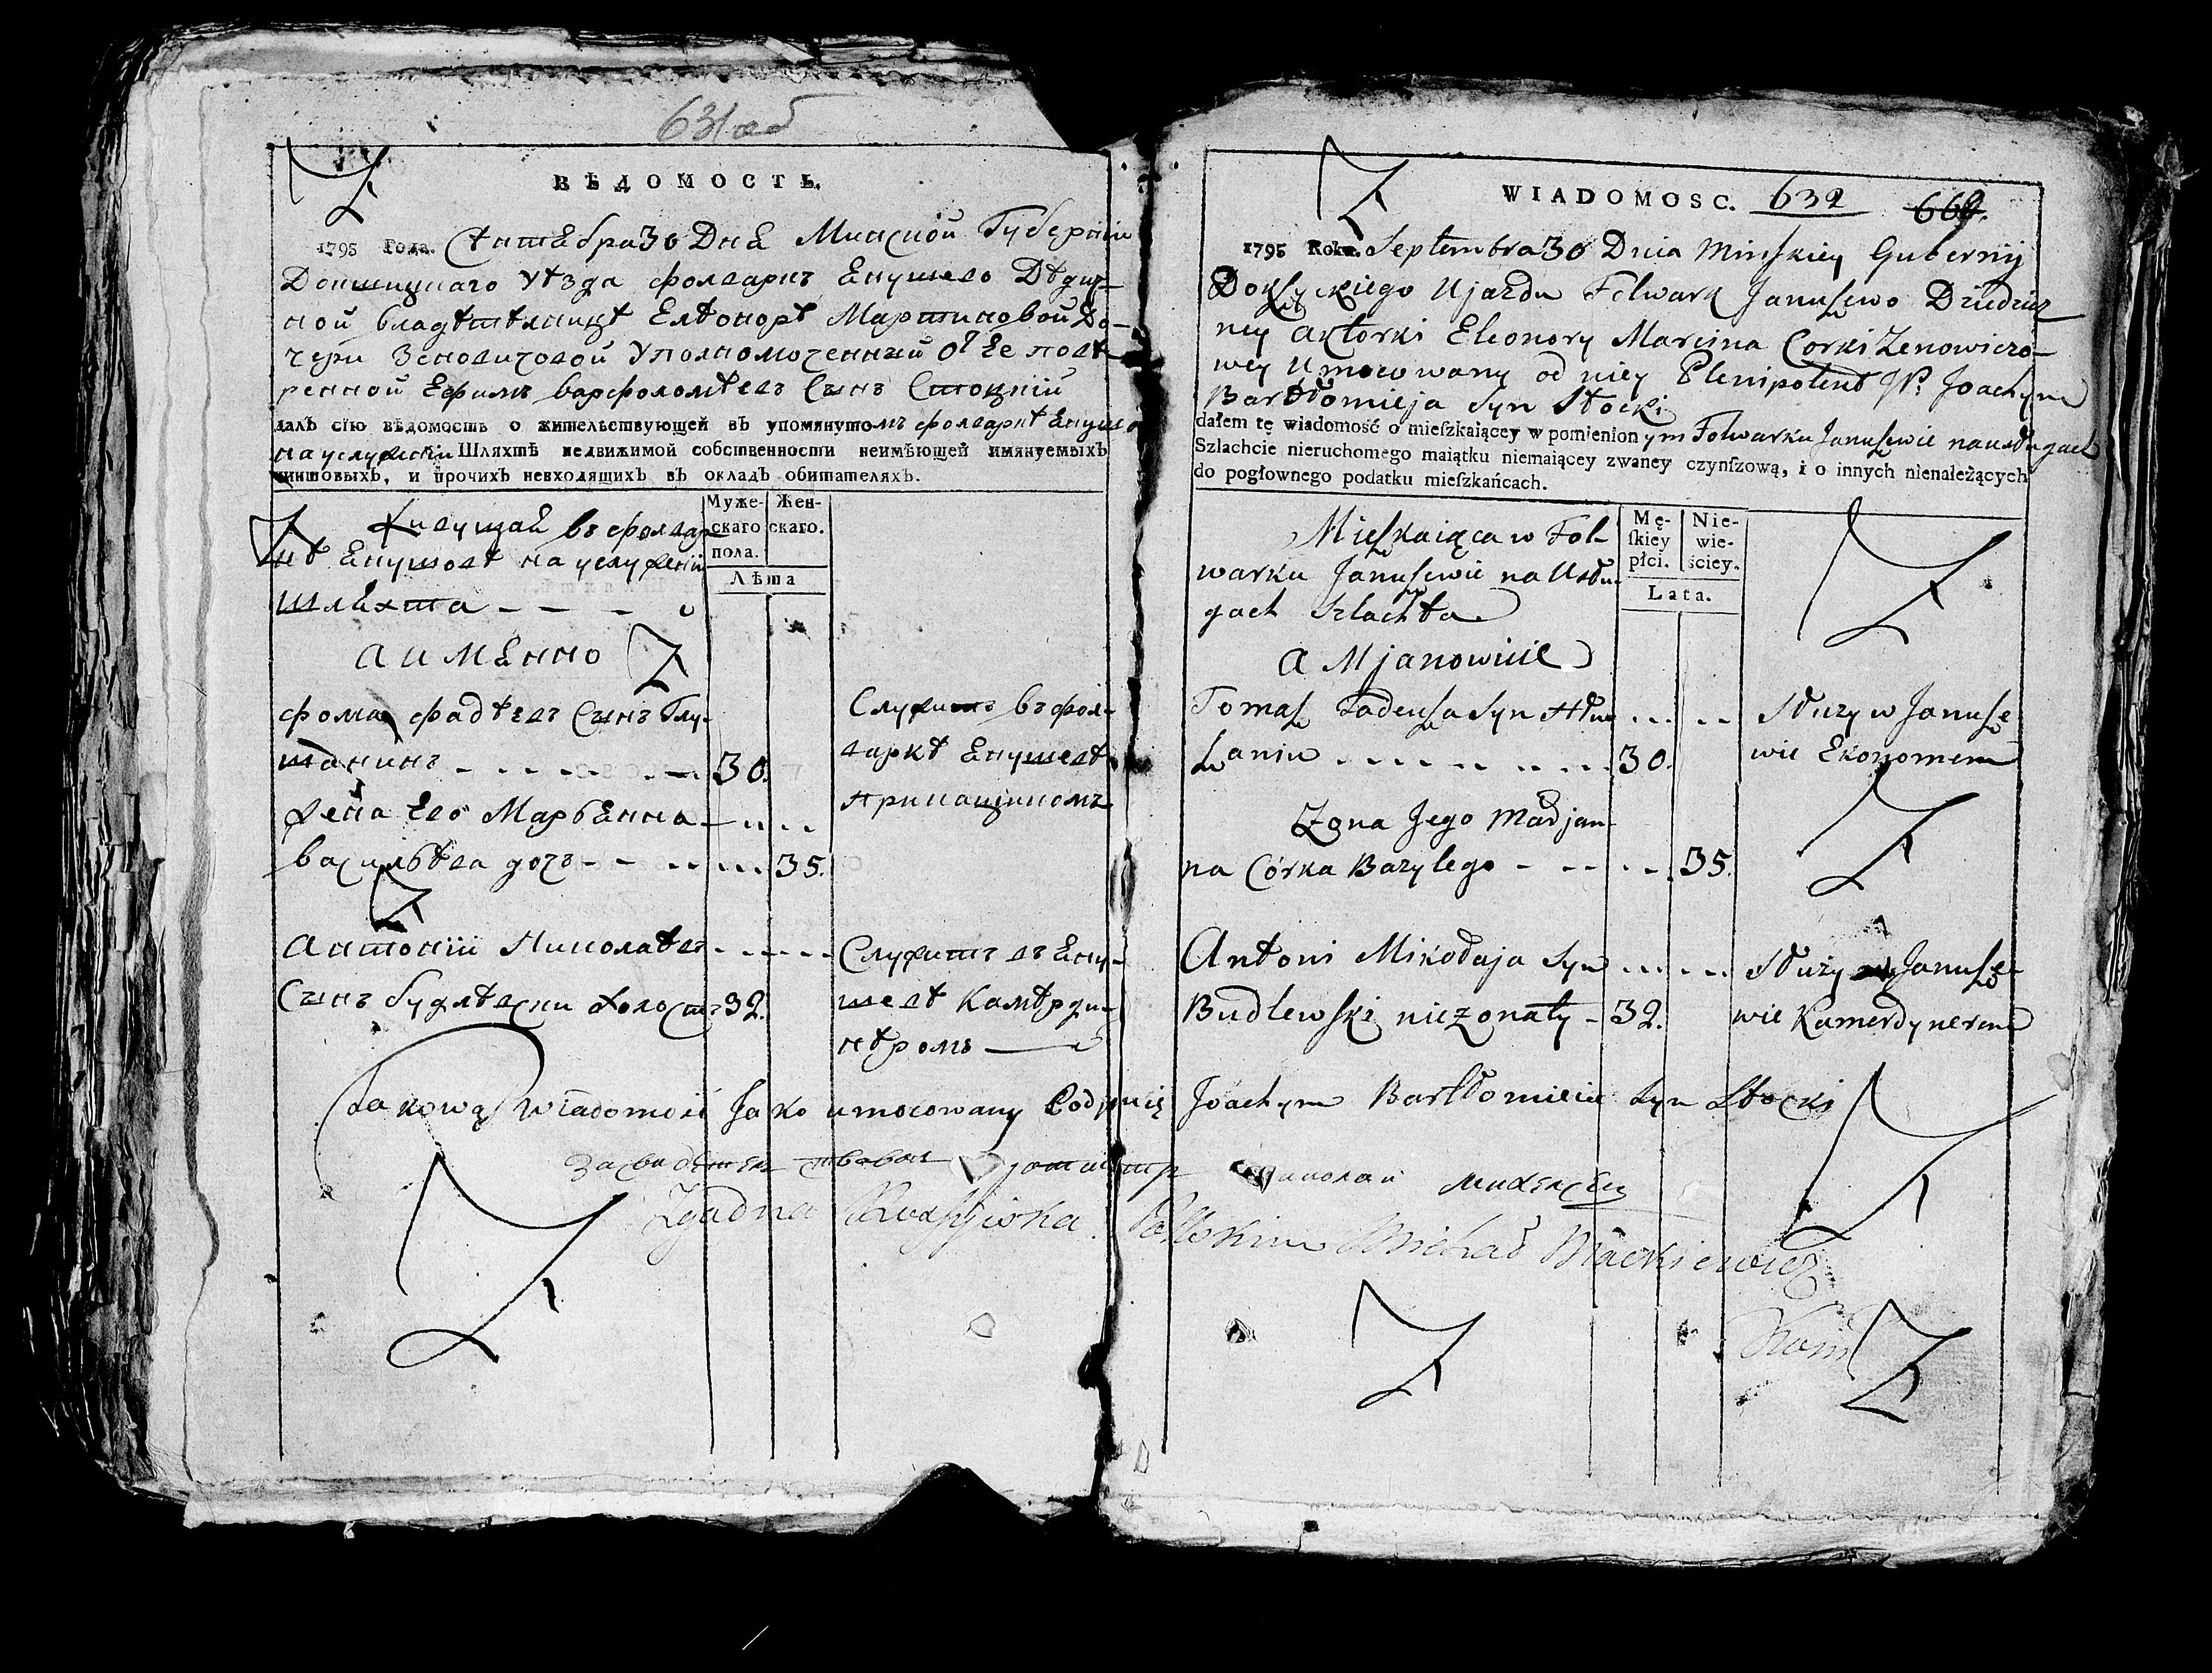 631 об
ВѢДОМОСТЬ.
1795 Года. Сентебра 30 Дня Минской Губернии
Докшицкаго уѣзда фолваркъ Енушево Дѣдич-
ной владѣтелницѣ Елѣонорѣ Мартиновой До-
чери Зеновичовой Уполномоченный от Ее повѣ-
ренной Ефимъ варфоломѣевъ Сынъ Стоцкій
далъ сію вѣдомость о жительствующей въ упомянутомъ фолваркѣ Енушевѣ
на услужении Шляхтѣ недвижимой собственности неимѣющей имянуемыхъ
чиншовыхъ, и прочихъ невходящихъ въ окладъ обитателяхъ.
Муже-
скаго
пола.
Жен-
скаго.
Лѣта
Живущай въ фолвар-
кѣ Енушовѣ на услужении
Шлехта
А имѣнно
фома фадѣевъ Сынъ Глу-
шанинъ 30.
Служитъ въ фол-
варкѣ Енушевѣ
прикащикомъ
жена Его Марьенна
васильѣва дочъ 35.
Антоній Николаѣвъ
Сынъ Будлѣвски холостъ 32.
Служитъ въ Ену-
шевѣ Камѣрди-
нѣромъ
WIADOMOSC. 632 669.
1795 Roku. Septembra 30 Dnia Minskiey Gubernij
Dokszyckiego Ujazdu Folwark Januszewo Dziedzicz-
ney aktorki Eleonory Marcina Corki Zenowiczo-
wey Umocowany od niey Plenipotent JP. Joachym
Bartłomieja Syn Stocki
dałem tę wiadomość o mieſzkaiącey w pomienionym Folwarku Januszewie na usługach
Szlachcie nieruchomego maiątku niemaiącey zwaney czynſzową, i o innych nienależących
do pogłownego podatku mieſzkańcach.
Mę-
ſkiey
płci.
Nie-
wie-
ściey.
Lata.
Mieszkaiąca w Fol-
warku Januszewie na Usłu-
gach Szlachta
A Mjanowicie
Tomasz Tadeusza Syn Hłu-
szanin 30.
Służy w Janusze-
wie Ekonomem
Zona Jego Marjan-
na Córka Bazylego 35.
Antoni Mikołaja Syn
Budlewski niezonaty 32.
Służy w Janusze-
wie Kamerdynerem
Takową Wiadomość Jako umocowany Podpisuię Joachym Bartłomieia Syn Stocki
Засвидетелствовал Ротмистр Николай
Zgadna z Rossyiska. Polskim Michał Mackiewicz